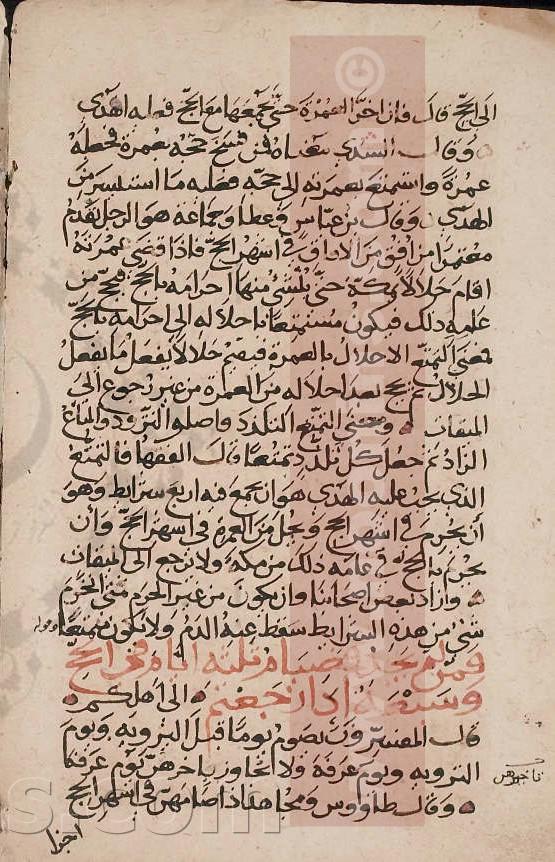 الى الحجّ قال فان اخّر العمرة حتى يجمعها مع الحجّ فعليه الهدى
وقال السدى معناه فمن فسخ حجه بعمرة فجعله
عمرة واستمتع بعمرته الى حجه فعليه ما استيسر من
الهدى وقال بن عباس وعطا وجماعة هو الرجل يقدم
معتمرا من افق من الافاق فى اشهر الحجّ فاذا قضى عمرته
اقام حلالا بمكة حتى ينشئ منها احرامه بالحج فيحج من
عامه ذلك فيكون مستمتعا باحلاله الى احرامه بالحج
فمعنى التمتع الاحلال بالعمرة فيقيم حلالا يفعل ما يفعل
الحلال ثم يحج بعد احلاله من العمرة من غير رجوع الى
الميقات ومعنى التمتع التلذذ واصله التزود والمتاع
الزاد ثم جعل كل تلذذ تمتعا قال الفقها فالتمتع
الذى يجب عليه الهدى هو ان يجمع فيه اربع شرايط وهو
أن يحرم فى اشهر الحج ويحل من العمرة فى اشهر الحجّ وأن
يحرم بالحج فى عامه ذلك من مكة ولا يرجع الى الميقات
وزاد بعض اصحابنا وان يكون من غير الحرم فمتى انخرم
شئ من هذه الشرايط سقط عنه الدم ولا يكون متمتعا قوله
فمن لم يجد فصيام ثلثة ايام فى الحج
وسبعة اذا رجعتم الى اهلكم
قال المفسرون يصوم يوما قبل التروية ويوم
التروية ويوم عرفة ولا يتجاوز باخرهن يوم عرفة
وقال طاووس ومجاهد اذا صامهن فى اشهر الحج
اجزا